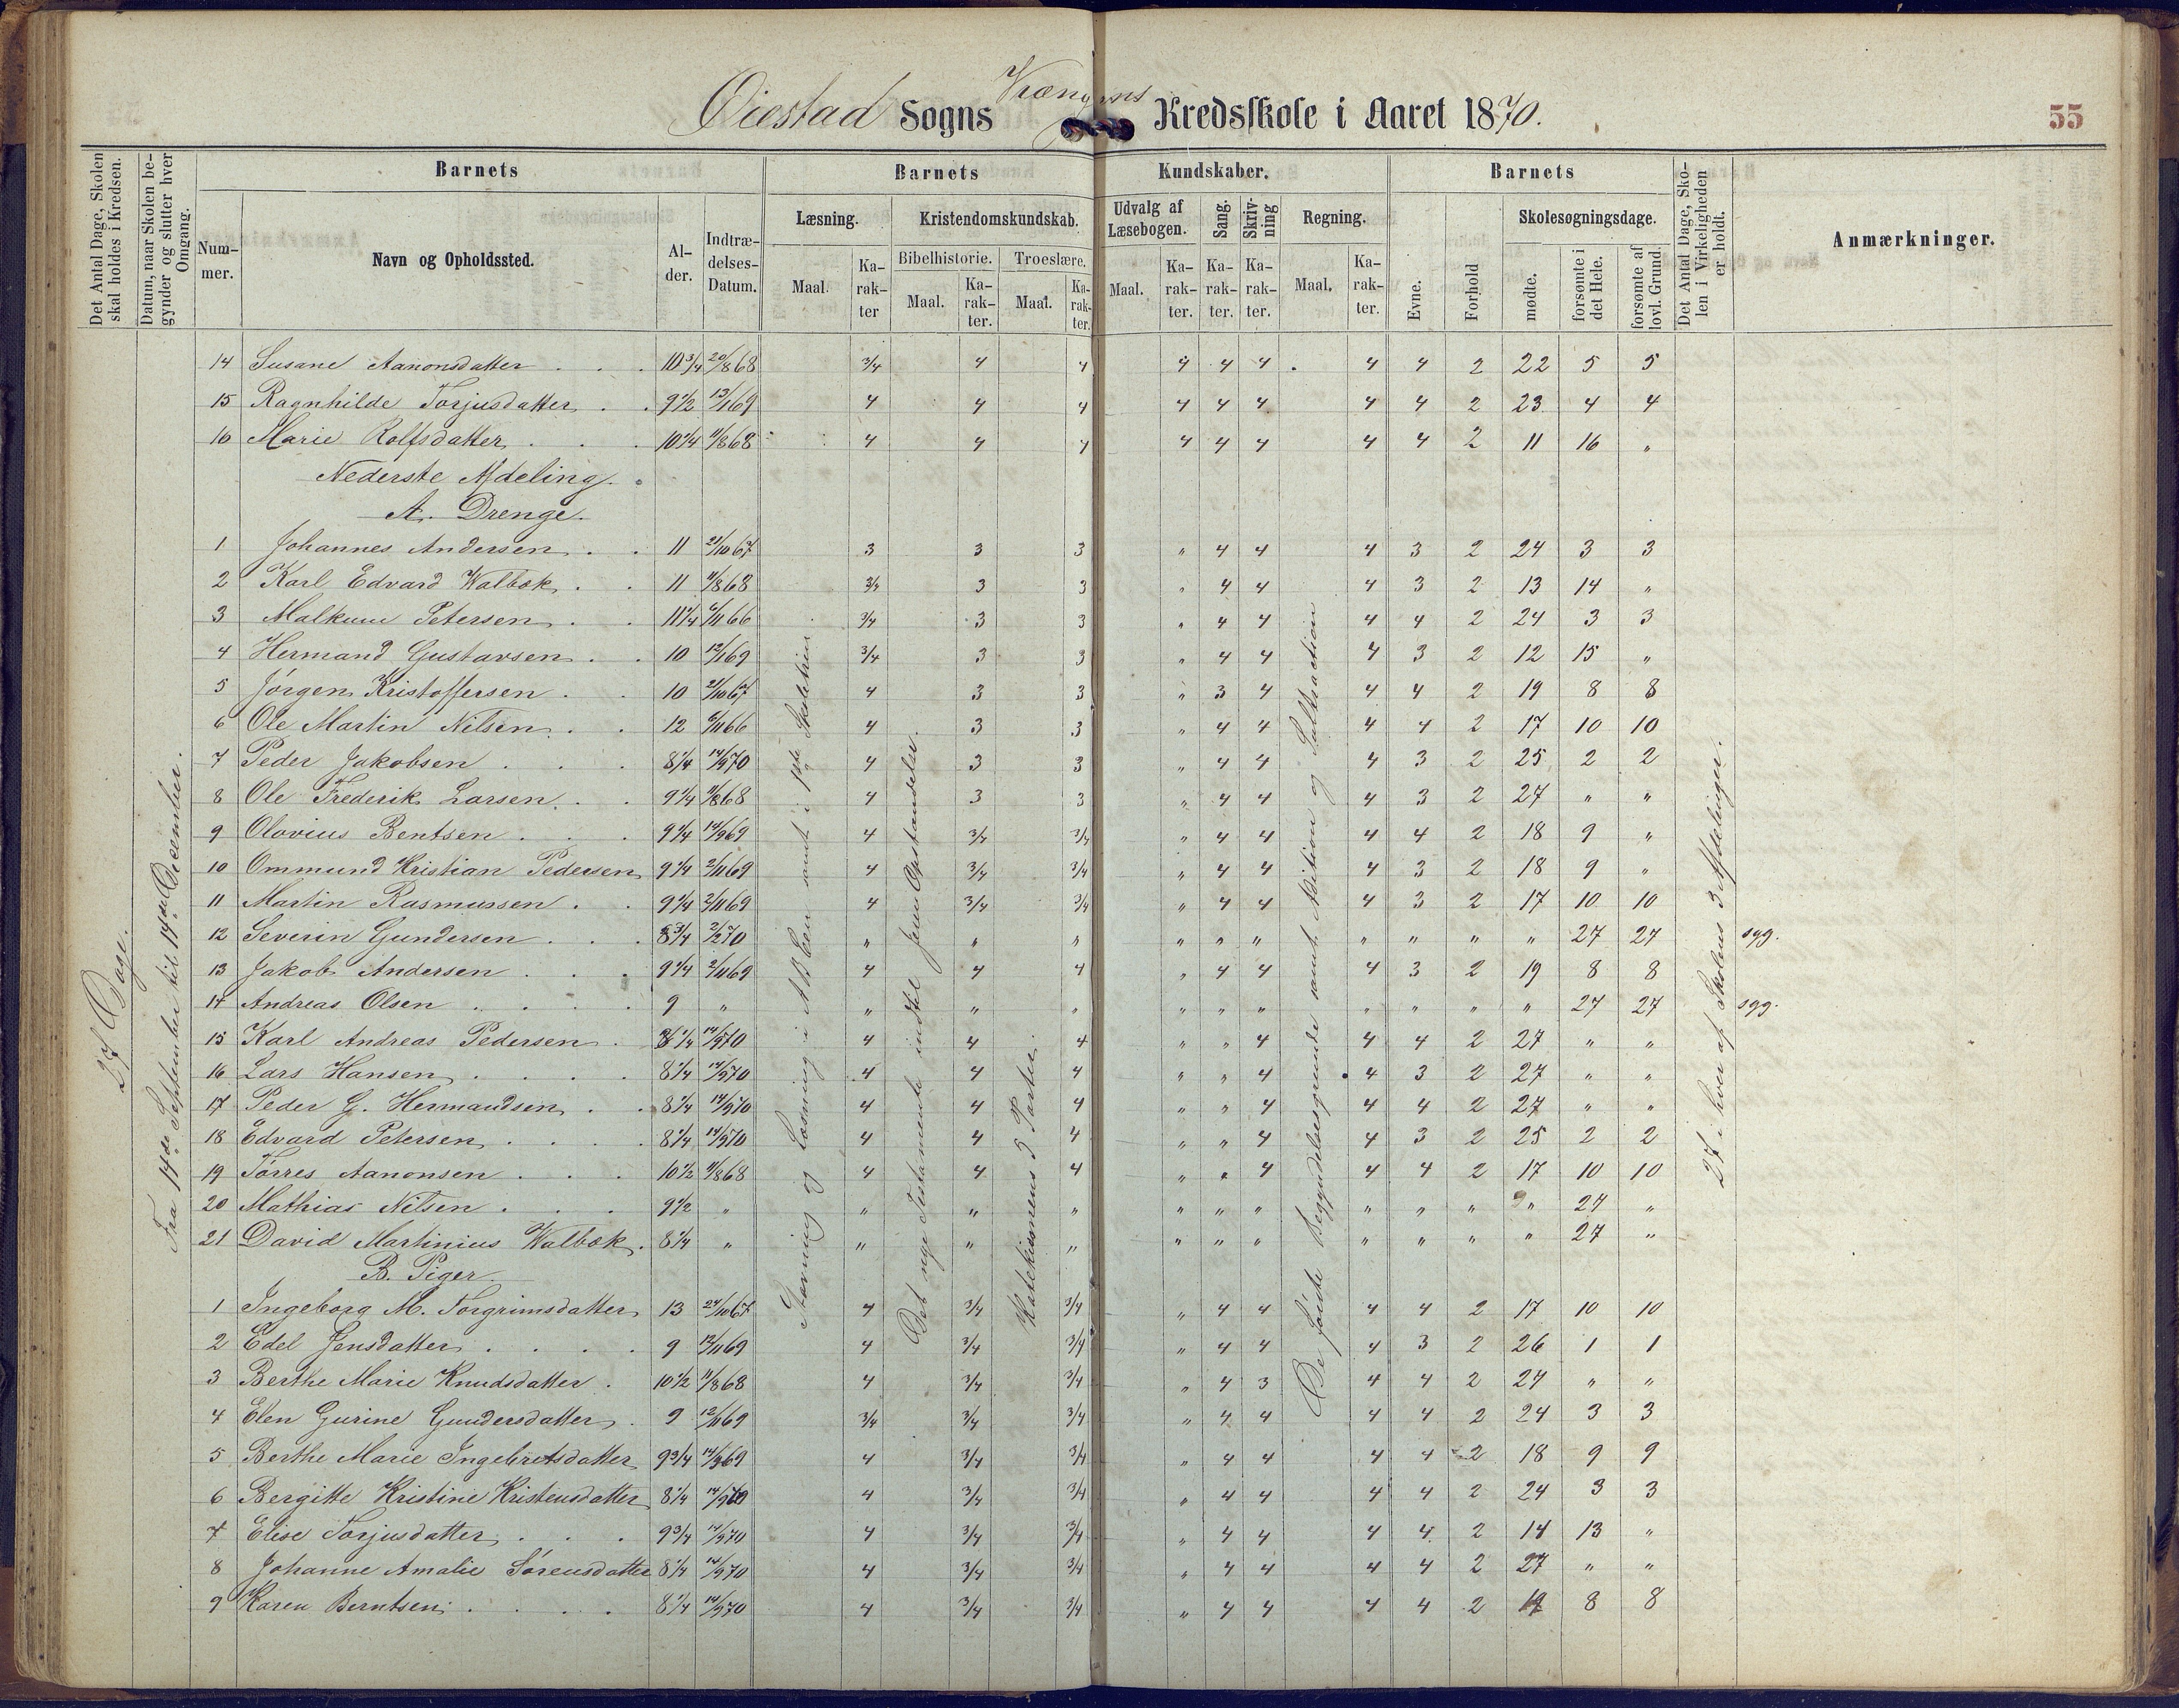 Øiestad Sogns Kredsskole i Aaret 1870.
55
Det Antal Dage, Skolen skal holdes i Kredsen.
Datum, naar Skolen begynder og slutter hver Omgang.
Barnets
Barnets
Kundskaber.
Barnets
Det Antal Dage, Skolen i Virkeligheden er holdt.
Anmærkninger.
Nummer.
Navn og Opholdssted.
Alder.
Indtrædelses-Datum.
Læsning.
Kristendomskundskab.
Udvalg af Læsebogen.
Sang.
Skrivning
Regning.
Evne.
Forhold
Skolesøgningsdage.
Bibelhistorie.
Troeslære.
Maal. Karakter Maal. Karakter. Maal. Karakter. Maal. Karakter. Karakter. Karakter. Maal. Karakter.
mødte.
forsømte i det Hele.
forsømte af lovl. Grund.
14 Susane Aanonsdatter 10 3/4 20/8 68 3/4 4 4 4 4 4 4 4 2 22 5 5
15 Ragnhilde Torjusdatter 9 1/2 13/1 69 4 4 4 4 4 4 4 4 2 23 4 4
16 Marie Rolfsdatter 10 1/4 11/8 68 4 4 4 4 4 4 4 4 2 11 16 "
Nederste Afdeling.
A. Drenge.
1 Johannes Andersen 11 21/10 67 3 3 3 " 4 4 4 3 2 24 3 3
2 Karl Edvard Walbøk 11 11/8 68 3/4 3 3 " 4 4 4 3 2 13 14 "
3 Malkum Petersen 11 1/4 6/11 66 3/4 3 3 " 4 4 4 4 2 24 3 3
4 Hermand Gustavsen 10 12/1 69 3/4 3 3 " 4 4 4 3 2 12 15 "
5 Jørgen Kristoffersen 10 21/10 67 4 3 3 " 3 4 4 4 2 19 8 8
6 Ole Martin Nilsen 12 6/11 66 4 3 3 " 4 4 4 4 2 17 10 10
7 Peder Jakobsen 8 1/4 14/9 70 4 3 3 " 4 4 4 3 2 25 2 2
8 Ole Frederik Larsen 9 1/4 11/8 68 4 3 3 " 4 4 4 3 2 27 " "
9 Olovius Bentsen 9 1/4 14/9 69 4 3/4 3/4 " 4 4 4 4 2 18 9 "
10 Ommund Kristian Pedersen 9 1/4 2/11 69 4 3/4 3/4 " 4 4 4 3 2 18 9 "
11 Martin Rasmussen 9 1/4 2/11 69 4 3/4 3/4 " 4 4 4 3 2 17 10 10
12 Severin Gundersen 8 3/4 2/2 70 " " " " " " " " " " 27 27 syg.
13 Jakob Andersen 9 1/4 2/11 69 4 4 4 " 4 4 4 3 2 19 8 8
14 Andreas Olsen 9 " " " " " " " " " " " 27 27 syg.
15 Karl Andreas Pedersen 8 1/4 14/9 70 4 4 4 " " 4 4 4 2 27 " "
16 Lars Hansen 8 1/4 14/9 70 4 4 4 " " 4 4 3 2 27 " "
17 Peder G. Hermandsen 8 1/4 14/9 70 4 4 4 " " 4 4 4 2 27 " "
18 Edvard Petersen 8 1/4 14/9 70 4 4 4 " " 4 4 3 2 25 2 2
19 Tørres Aanonsen 10 1/2 11/8 68 4 4 4 " " 4 4 4 2 17 10 10
20 Mathias Nilsen 9 1/2 " " " " " " " " " " " 27 "
21 David Martinius Walbøk 8 1/4 " " " " " " " " " " " 27 "
B. Piger.
1 Ingeborg M. Torgrimsdatter 13 24/10 67 4 3/4 3/4 " 4 4 4 4 2 17 10 10
2 Edel Jensdatter 9 12/11 69 4 3/4 3/4 " 4 4 4 3 2 26 1 1
3 Berthe Marie Knudsdatter 10 1/2 11/8 68 4 3/4 3/4 " 4 3 4 4 2 27 " "
4 Elen Gurine Gundersdatter 9 12/11 69 3/4 3/4 3/4 " 4 4 4 4 2 24 3 3
5 Berthe Marie Ingebretsdatter 9 3/4 14/9 69 4 3/4 3/4 " 4 4 4 4 2 18 9 9
6 Bergitte Kristine Kristensdatter 8 1/4 14/9 70 4 3/4 3/4 " 4 4 4 4 2 24 3 3
7 Elise Torjusdatter 9 3/4 14/9 70 4 3/4 3/4 " 4 4 4 4 2 14 13 "
8 Johanne Amalie Sørensdatter 8 1/4 14/9 70 4 3/4 3/4 " 4 4 4 4 2 27 " "
9 Karen Berntsen 8 1/4 14/9 70 4 3/4 3/4 " 4 4 4 4 2 19 8 8
27 Dage.
Fra 14de September til 14de December.
Stavning og Læsning i ABCen samt i 1ste Skoletrin.
Det nye Testamente indtil Jesu Opstandelse.
Katekismens 3 Parter.
De første Begyndelsesgrunde samt Adition og Subtraction
27 i hver af Skolens 3 Afdelinger.